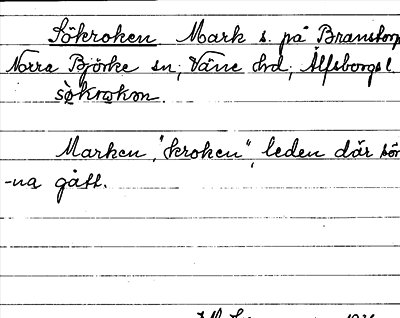 Sökroken Mark s. på Branstorp
Norra Björke sn, Väne hd, Älfsborgs l.
sö̀krωkən.
Marken, "kroken", leden där sör-
-na gått.